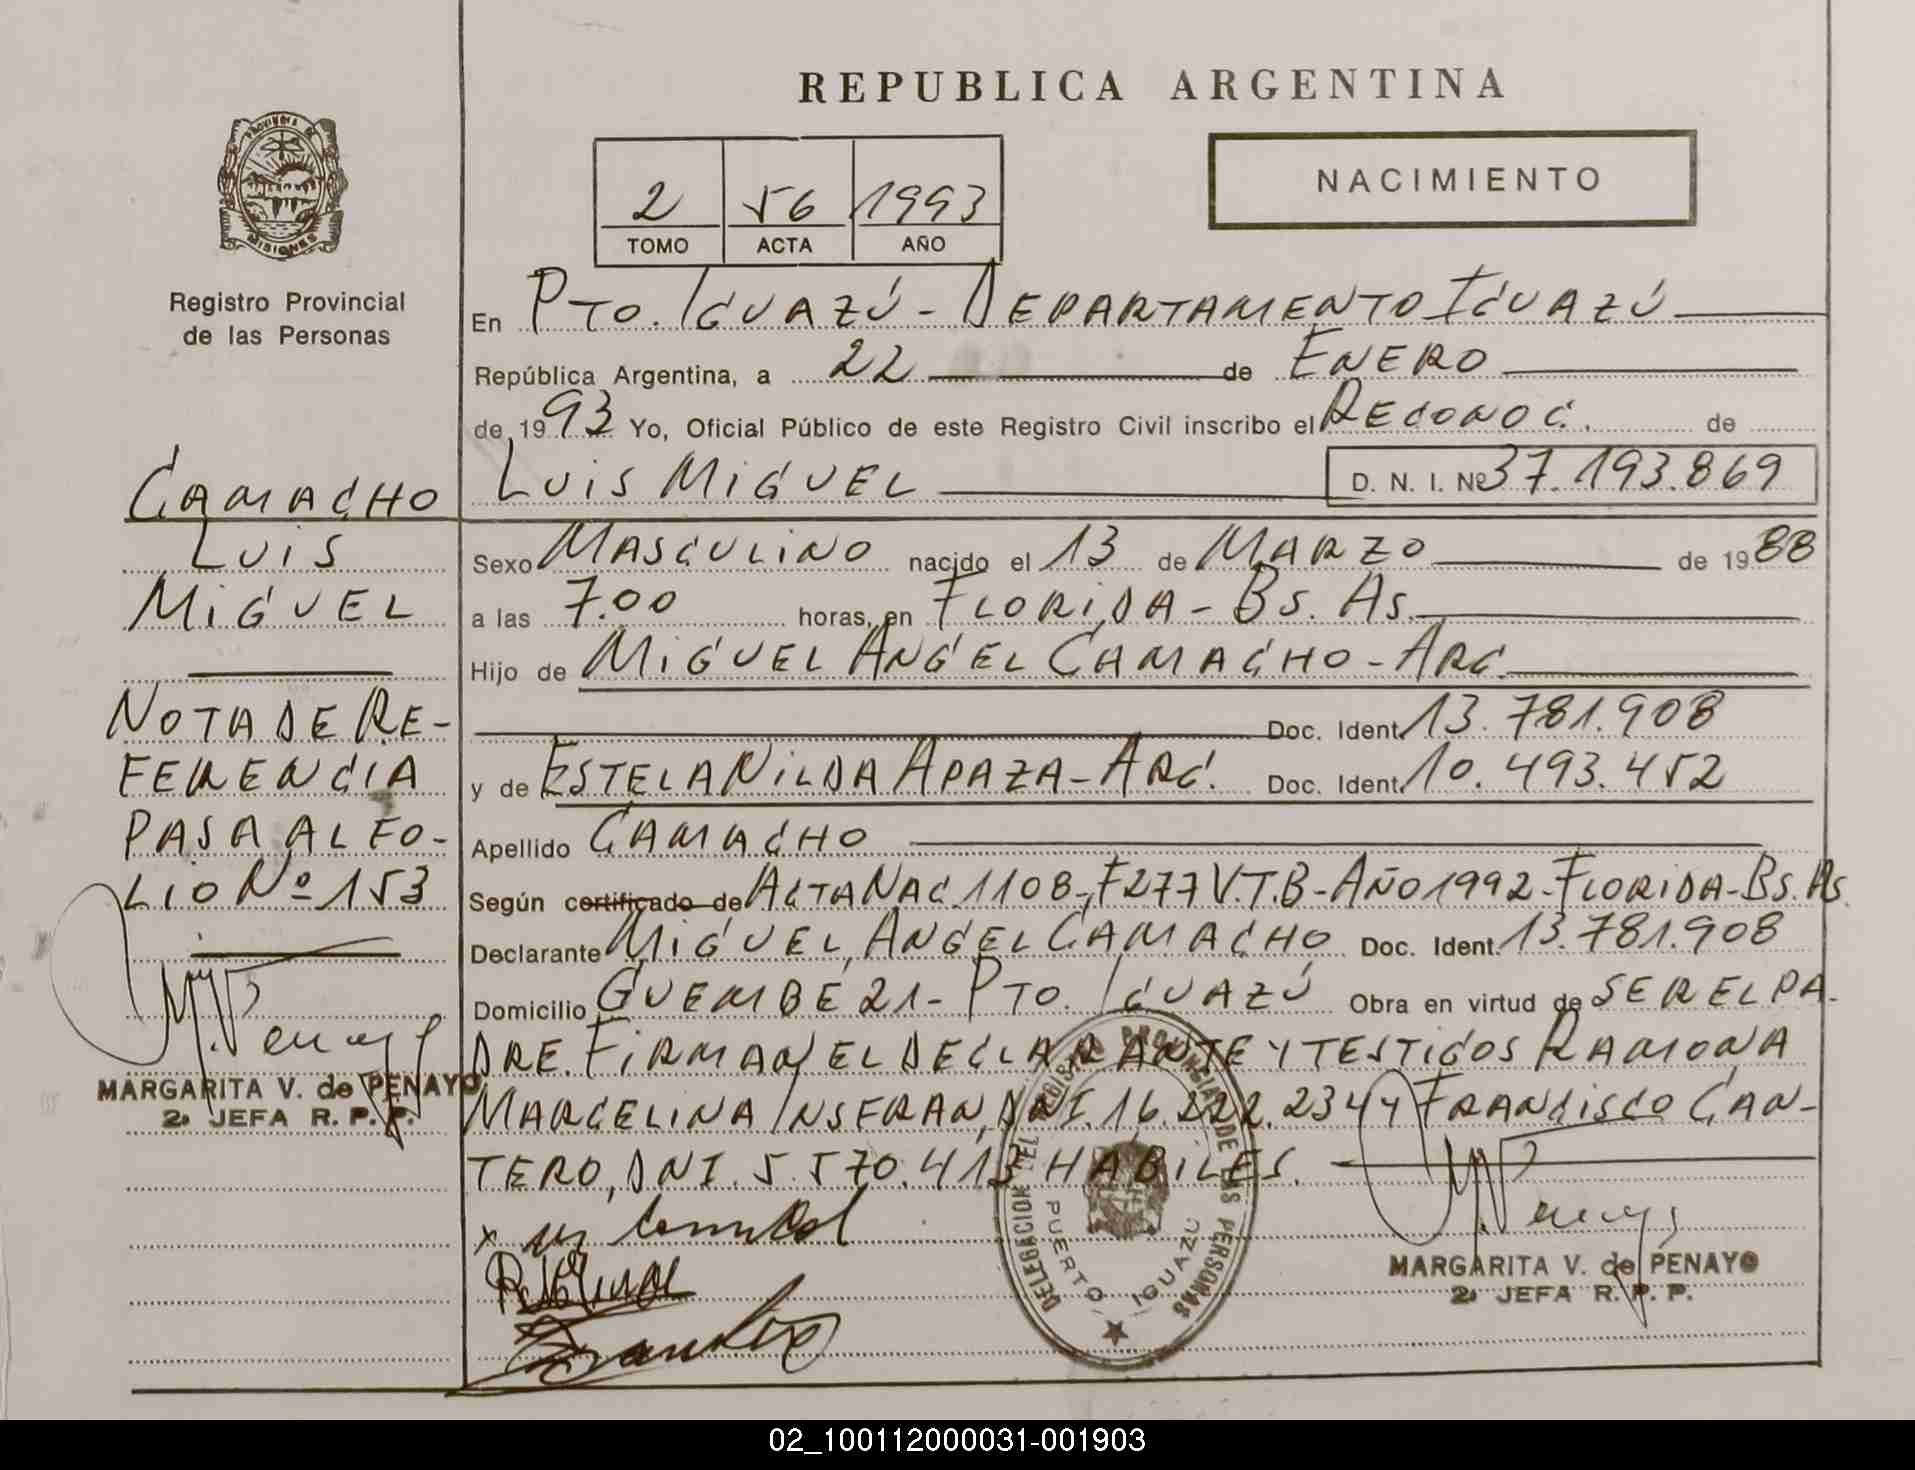 REPUBLICA ARGENTINA
PROVINCIA DE
MISIONES
Registro Provincial
de las Personas
NACIMIENTO
2 56 1993
TOMO ACTA AÑO
En PTO. IGUAZÚ - DEPARTAMENTO IGUAZÚ
República Argentina, a 22 de ENERO
de 1993 Yo, Oficial Público de este Registro Civil inscribo el RECONOC. de
LUIS MIGUEL D. N. I. Nº 37.193.869
Sexo MASCULINO nacido el 13 de MARZO de 1988
a las 7.00 horas, en FLORIDA - BS. AS.
Hijo de MIGUEL ANGEL CAMACHO - ARG.
Doc. Ident. 13.781.908
y de ESTELA NILDA APAZA - ARG. Doc. Ident. 10.493.452
Apellido CAMACHO
Según certificado de ACTA NAC. 1108 - F277 V. T.B - AÑO 1992 - FLORIDA - BS. AS.
Declarante MIGUEL ANGEL CAMACHO Doc. Ident. 13.781.908
Domicilio GUEMBE 21 - PTO. IGUAZÚ Obra en virtud de SER EL PA-
DRE. FIRMAN EL DECLARANTE Y TESTIGOS RAMONA
MARCELINA INSFRAN, DNI. 16.222.234 Y FRANCISCO CAN-
TERO, DNI. 5.570.413 HABILES.
CAMACHO
LUIS
MIGUEL
NOTA DE RE-
FERENCIA
PASA AL FO-
LIO Nº 153
MARGARITA V. de PENAYO
2ª JEFA R. P. P.
DELEGACION DEL REGISTRO PROVINCIAL DE LAS PERSONAS
PUERTO IGUAZU
MARGARITA V. de PENAYO
2ª JEFA R. P. P.
02_100112000031-001903